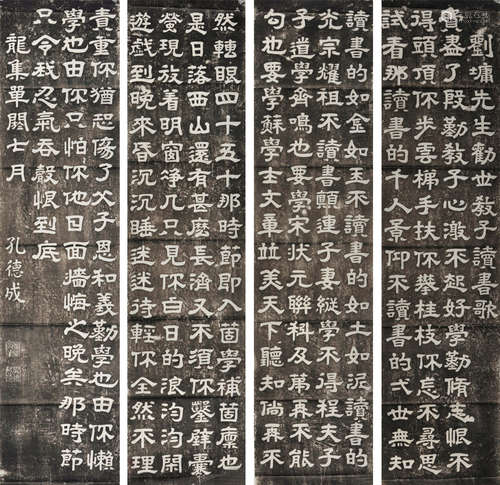 劉墉先生勸世教子讀書歌
費盡了殷勤教子心激不起好學勤脩志恨不
得頭頂你步雲梯手扶你攀桂枝你怎不尋思
試看那讀書的千人景仰不讀書的弌世無知
讀書的如金如玉不讀書的如土如泥讀書的
光宗耀祖不讀書顛連子妻縱學不得程夫子
子道學齊鳴也要學宋狀元聯科及第再不能
句也要學蘇學士文章並美天下聽知倘再不
然轉眼四十五十那時節即入箇學補箇廩也
是日落西山還有甚麼長濟又不須你鑿壁囊
螢現放着明窗淨几只見你白日的浪淘淘閒
遊戲到晚來昏沉沉睡迷迷待輕你全然不理
責重你猶恐傷了父子恩和義勤學也由你懶
學也由你只怕你他日面牆悔之晚矣那時節
只令我忍氣吞聲恨到底
龍集單閼七月 孔德成